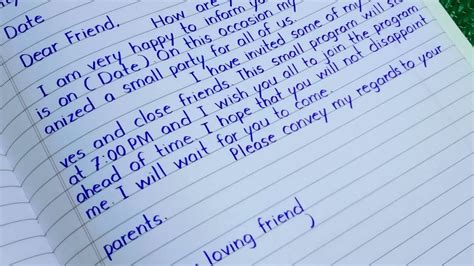 Date
Dear Friend, How are
I am very happy to inform you
is on (Date) On this occasion my
anized a small party for all of us.
I have invited some of my
ves and close friends. This small program will sta
at 7:00 PM and I wish you all to join the program
ahead of time. I hope that you will not disappoint
me. I will wait for you to come.
Please convey my regards to your
parents.
loving friend,